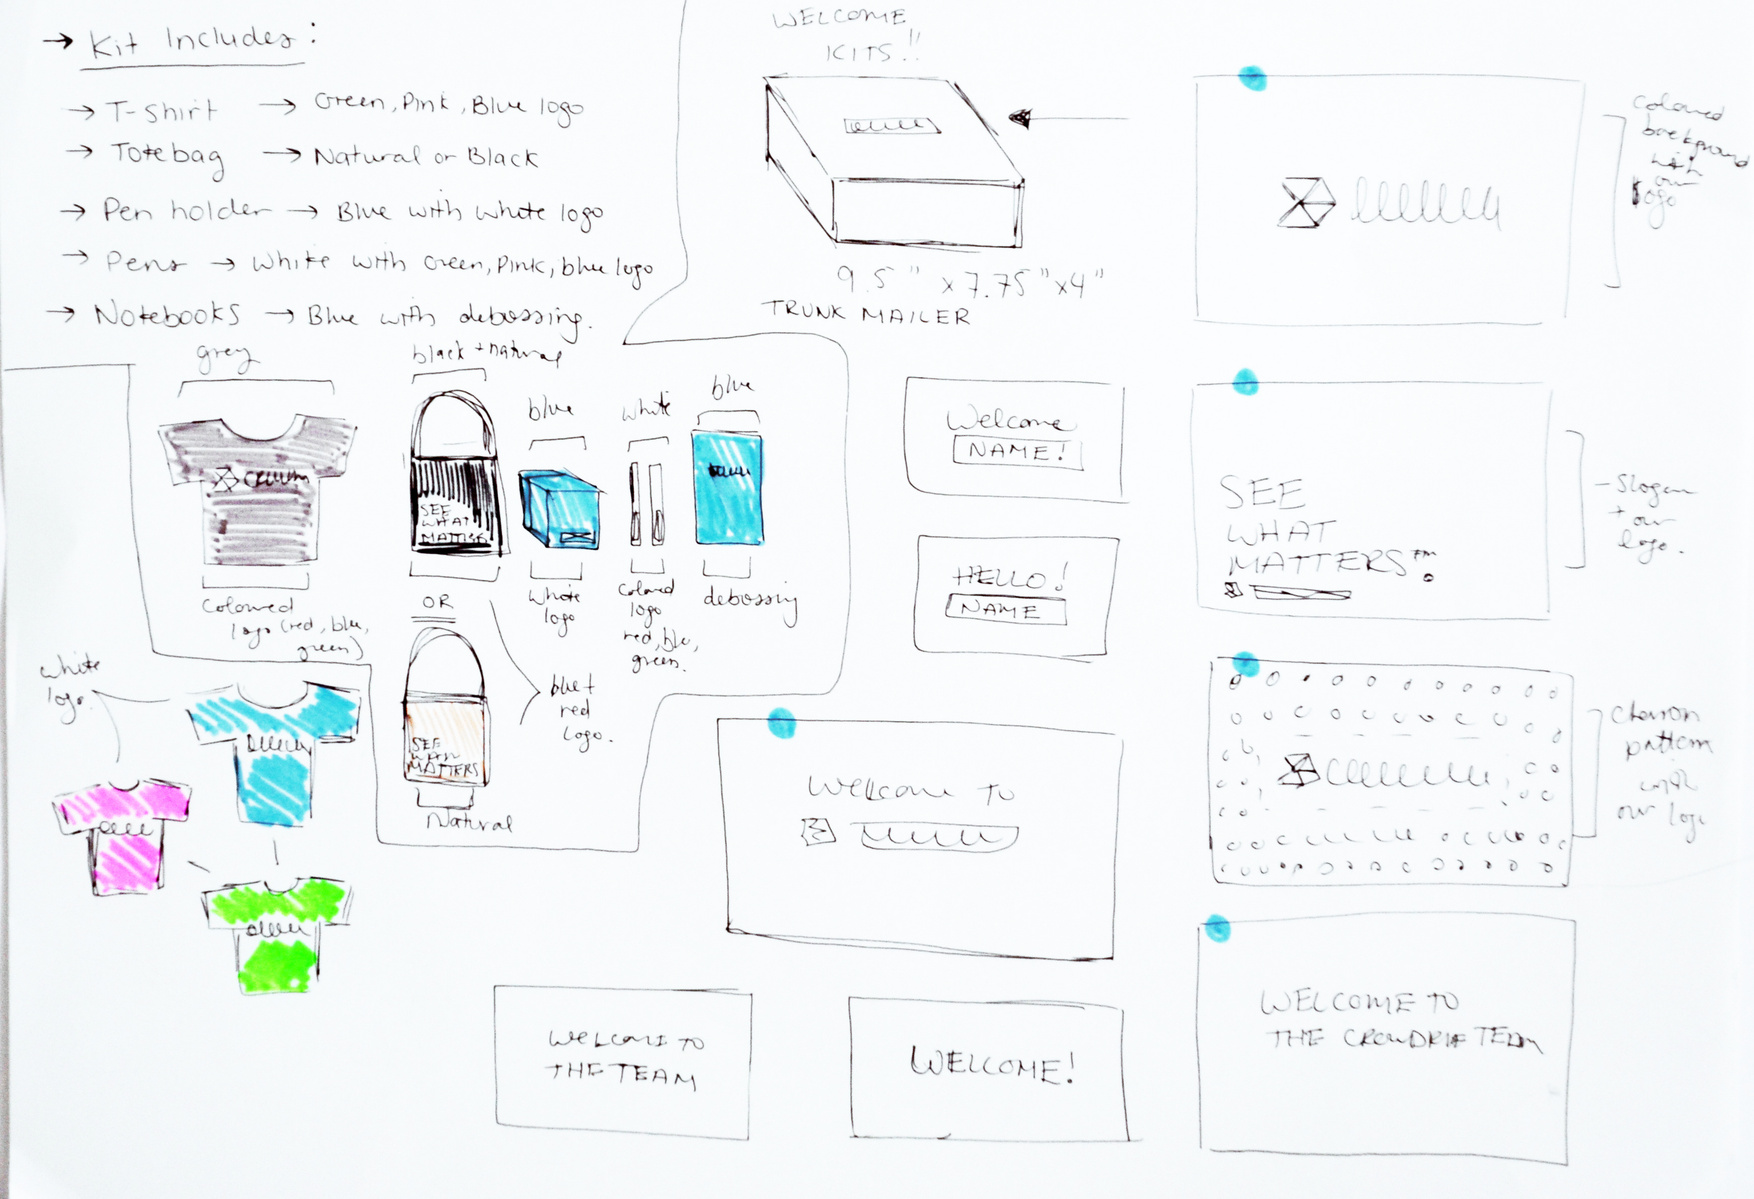 → Kit Includes:
→ T-shirt → Green, Pink, Blue logo
→ Totebag → Natural or Black
→ Pen holder → Blue with white logo
→ Pens → White with Green, Pink, blue logo
→ Notebooks → Blue with debossing.
WELCOME
KITS!!
9.5" x 7.75" x 4"
TRUNK MAILER
grey
black + natural
blue
white
blue
SEE
WHAT
MATTERS
Coloured
logo (red, blue,
green)
OR
white
logo
Colored
logo
red, blu,
green.
debossing
white
logo.
blue +
red
logo.
SEE
WHAT
MATTERS
Natural
Welcome
NAME!
HELLO!
NAME
Welcome to
WELCOME TO
THE TEAM
WELCOME!
Colored
background
with
our
logo
SEE
WHAT
MATTERS™.
- Slogan
+ our
logo.
Chevron
pattern
with
our logo
WELCOME TO
THE CROWDRIFF TEAM